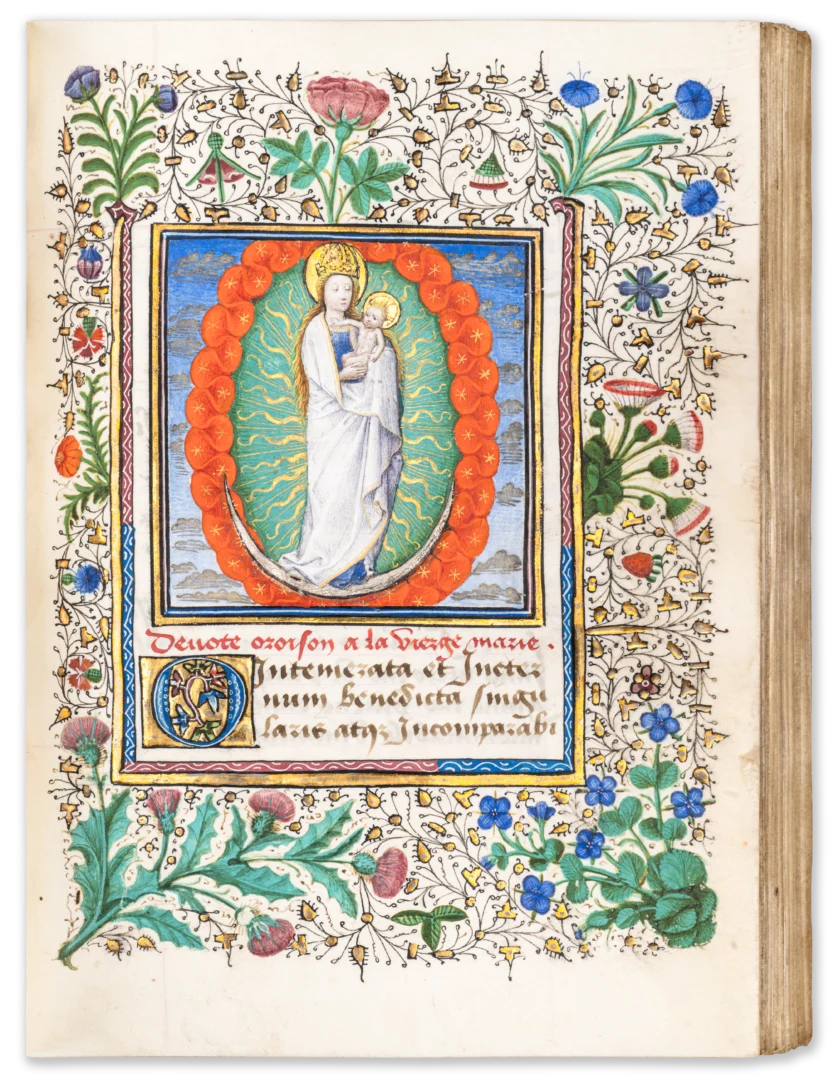 Devote oroison a la vierge marie.
O Intemerata et Ineter
num benedicta singu
laris atqz Incomparabi